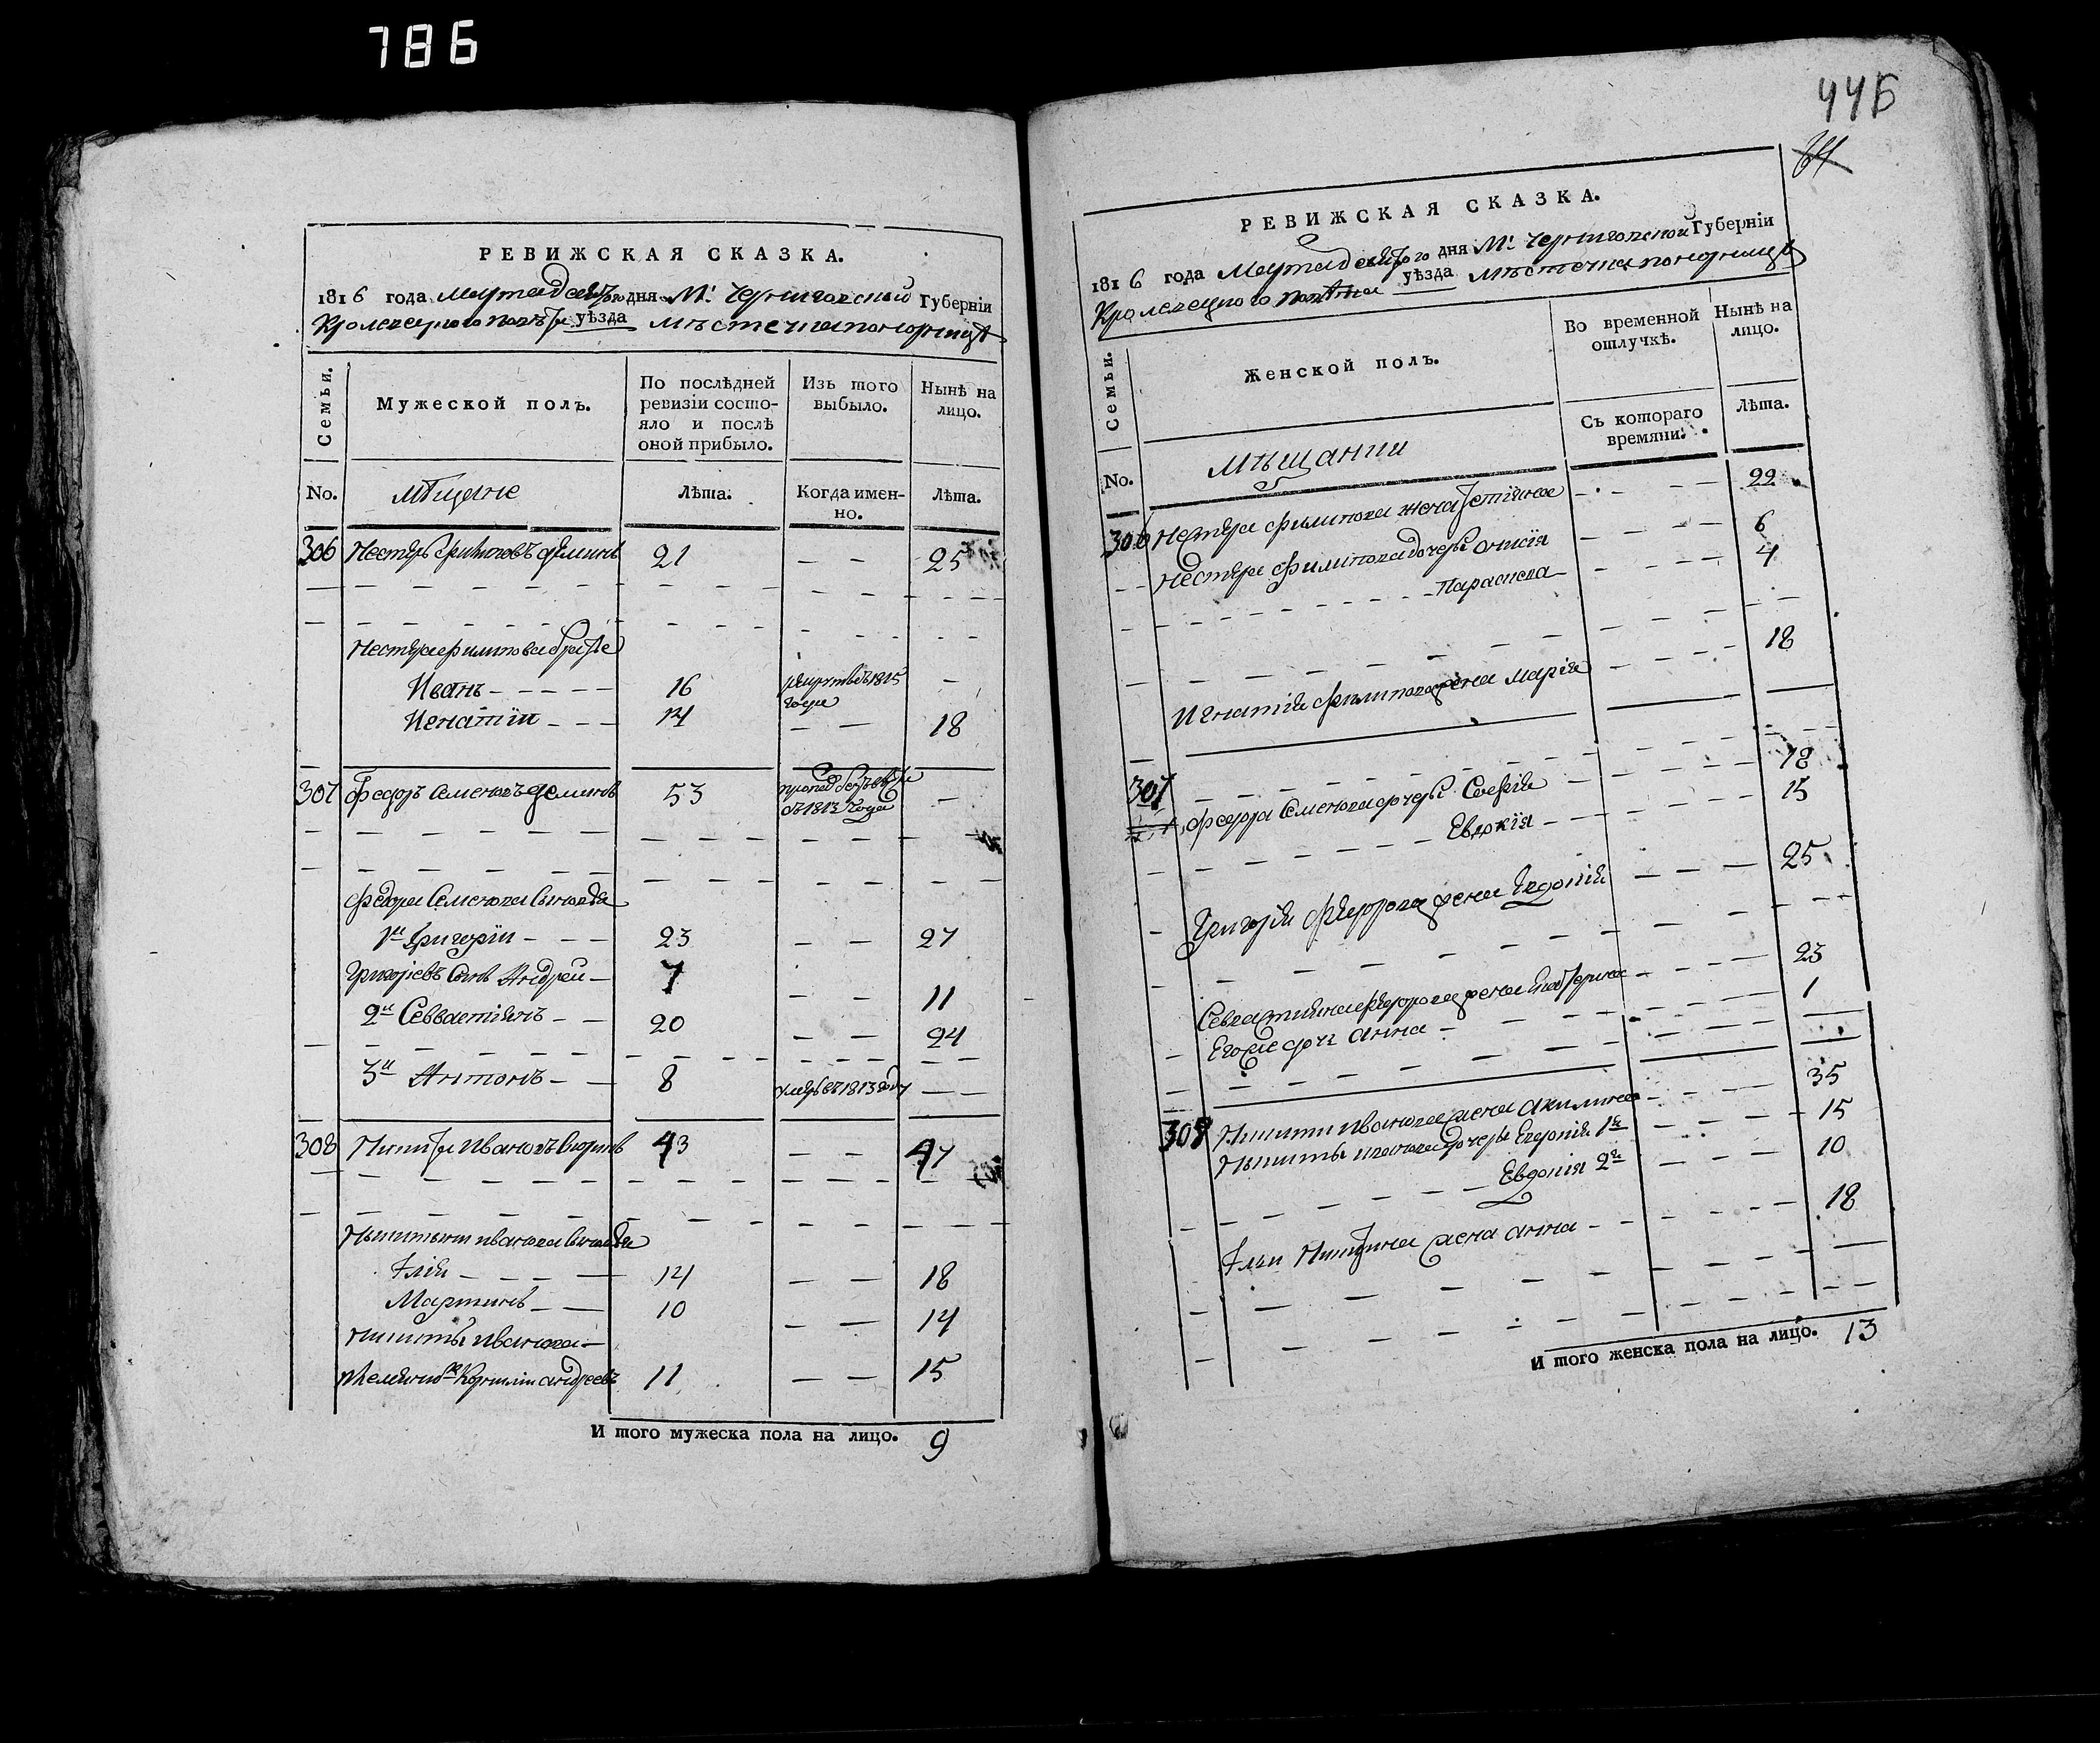 786
РЕВИЖСКАЯ СКАЗКА.
1816 года Марта дня М. Черниговской Губернїи
Кролевецкого повѣта уѣзда мѣстечка понорницѣ
Семьи.
Мужеской полъ.
По послѣдней ревизїи состояло и послѣ оной прибыло.
Изъ того выбыло.
Нынѣ на лицо.
No.
мѣщане
Лѣта.
Когда именно.
Лѣта.
306 Нестеръ Филиповъ 21 — — 25
Нестера филипова братѣ
Иванъ 16 1815 года —
Игнатїи 14 — — 18
307 Федоръ Семеновъ 53 1813 года —
Федора Семенова сыновья
1й Григорїи 23 — — 27
Григорїевъ сынъ Андреи 7 — — 11
2й Севвастїянъ 20 — — 24
3й Антонъ 8 умеръ въ 1813 году — —
308 Никита Ивановъ 43 — — 47
Никиты иванова сыновья
Илїя 14 — — 18
Мартинъ 10 — — 14
Никиты Иванова
племянникъ Корнилїи андреевъ 11 — — 15
И того мужеска пола на лицо. 9
446
РЕВИЖСКАЯ СКАЗКА.
1816 года Марта дня М. Черниговской Губернїи
Кролевецкого повѣта уѣзда мѣстечка понорницѣ
Семьи.
Женской полъ.
Во временной отлучкѣ.
Нынѣ на лицо.
Съ котораго времяни.
Лѣта.
No.
мѣщанки
306 Нестера филипова жена 22
Нестера филипова дочери Онисїя 6
Параскева 4
Игнатїя филипова жена Марїя 18
307
Федора Семенова дочери Софїя 18
Евдокїя 15
Григорїя Федорова жена Евдокїя 25
Севастїяна Федорова жена 23
Его же дочь анна 1
308 Никиты иванова жена акилина 35
Никиты иванова дочери Евдокїя 1я 15
Евдокїя 2я 10
Ильи Никитина жена анна 18
И того женска пола на лицо. 13